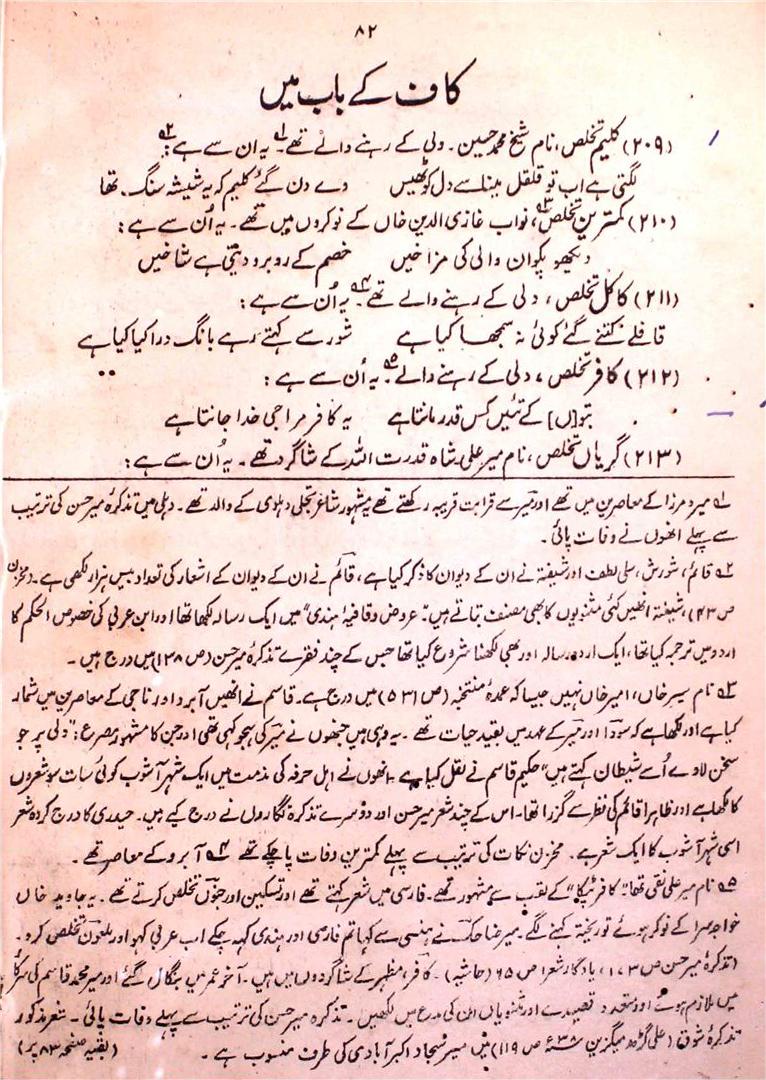 ۸۲
کاف کے باب میں
(۲۰۹) کلیم تخلص، نام شیخ محمد حسین۔ دلی کے رہنے والے تھے۱؎۔ یہ ان سے ہے۲؎:
لگتی ہے اب تو قلقل مینا سے دل کو ٹھیس وے دن گئے کلیم کہ یہ شیشہ سنگ تھا
(۲۱۰) کمترین تخلص۳؎، نواب غازی الدین خاں کے نوکروں میں تھے۔ یہ اُن سے ہے:
دیکھو پکوان والی کی مزاخیں خصم کے روبرو دیتی ہے شاخیں
(۲۱۱) کاکل تخلص، دلی کے رہنے والے تھے۴؎۔ یہ اُن سے ہے:
قافلے کتنے گئے کوئی نہ سمجھا کیا ہے شور سے کہتے رہے بانگ درا کیا کیا ہے
(۲۱۲) کافر تخلص، دلی کے رہنے والے۵؎۔ یہ اُن سے ہے:
بتو[ں] کے تئیں کس قدر مانتا ہے یہ کافر مرا جی خدا جانتا ہے
(۲۱۳) گریاں تخلص، نام میر علی۔ شاہ قدرت اللہ کے شاگرد تھے۔ یہ اُن سے ہے:
۱؎ میر و مرزا کے معاصرین میں تھے اور میر سے قرابت قریبہ رکھتے تھے یہ مشہور شاعر تجلی دہلوی کے والد تھے۔ دہلی میں تذکرۂ میر حسن کی ترتیب
سے پہلے انھوں نے وفات پائی۔
۲؎ قائم، شورش، علی لطف اور شیفتہ نے ان کے دیوان کا ذکر کیا ہے، قائم نے ان کے دیوان کے اشعار کی تعداد بیس ہزار لکھی ہے۔ (مخزن
ص ۴۳)، شیفتہ انھیں کئی مثنویوں کا بھی مصنف بتاتے ہیں۔ "عروض و قافیۂ ہندی" میں ایک رسالہ لکھا تھا اور ابن عربی کی خصوص الحکم کا
اردو میں ترجمہ کیا تھا، ایک اردو رسالہ اور بھی لکھنا شروع کیا تھا جس کے چند فقرے تذکرۂ میر حسن (ص ۱۳۸) میں درج ہیں۔
۳؎ نام میر خاں، امیر خاں نہیں جیسا کہ عمدۂ منتخبہ (ص ۵۳۱) میں درج ہے۔ قاسم نے انھیں آبرو اور ناجی کے معاصرین میں شمار
کیا ہے اور لکھا ہے کہ سودا اور میر کے عہد میں بقید حیات تھے۔ یہ وہی ہیں جنھوں نے میر کی ہجو کہی تھی اور جن کا مشہور مصرع: "دلی پر جو
سخن لاوے اُسے شیطان کہتے ہیں" حکیم قاسم نے نقل کیا ہے۔ انھوں نے اہل حرفہ کی مذمت میں ایک شہر آشوب کوئی سات سو شعروں
کا لکھا ہے اور ظاہرا قائم کی نظر سے گزرا تھا۔ اس کے چند شعر میر حسن اور دوسرے تذکرہ نگاروں نے درج کیے ہیں۔ حیدری کا درج کردہ شعر
اسی شہر آشوب کا ایک شعر ہے۔ مخزن نکات کی ترتیب سے پہلے کمترین وفات پا چکے تھے ۴؎ آبرو کے معاصر تھے۔
۵؎ نام میر علی نقی تھا۔ "کافر ٹیکا" کے لقب سے مشہور تھے۔ فارسی میں شعر کہتے تھے اور تسکین اور جنوں تخلص کرتے تھے۔ یہ جاوید خاں
خواجہ سرا کے نوکر ہوئے تو ریختہ کہنے لگے۔ میر ضاحک نے ہنسی سے کہا تم فارسی اور ہندی کہہ چکے اب عربی کہو اور ملعون تخلص کرو۔
(تذکرۂ میر حسن ص ۱۷۳، یادگار شعرا ص ۶۵ (حاشیہ)۔ کافر، مظہر کے شاگردوں میں ہیں۔ آخر عمر میں بنگال گئے اور میر محمد قاسم کی سرکار
میں ملازم ہوئے اور متعدد قصیدے اور مثنویاں ان کی مدح میں لکھیں۔ تذکرہ میر حسن کی ترتیب سے پہلے وفات پائی۔ شعر مذکور
تذکرۂ شوق (علی گڑھ میگزین ص ۱۱۹) میں میر سجاد اکبر آبادی کی طرف منسوب ہے۔ (بقیہ صفحہ ۸۳ پر)